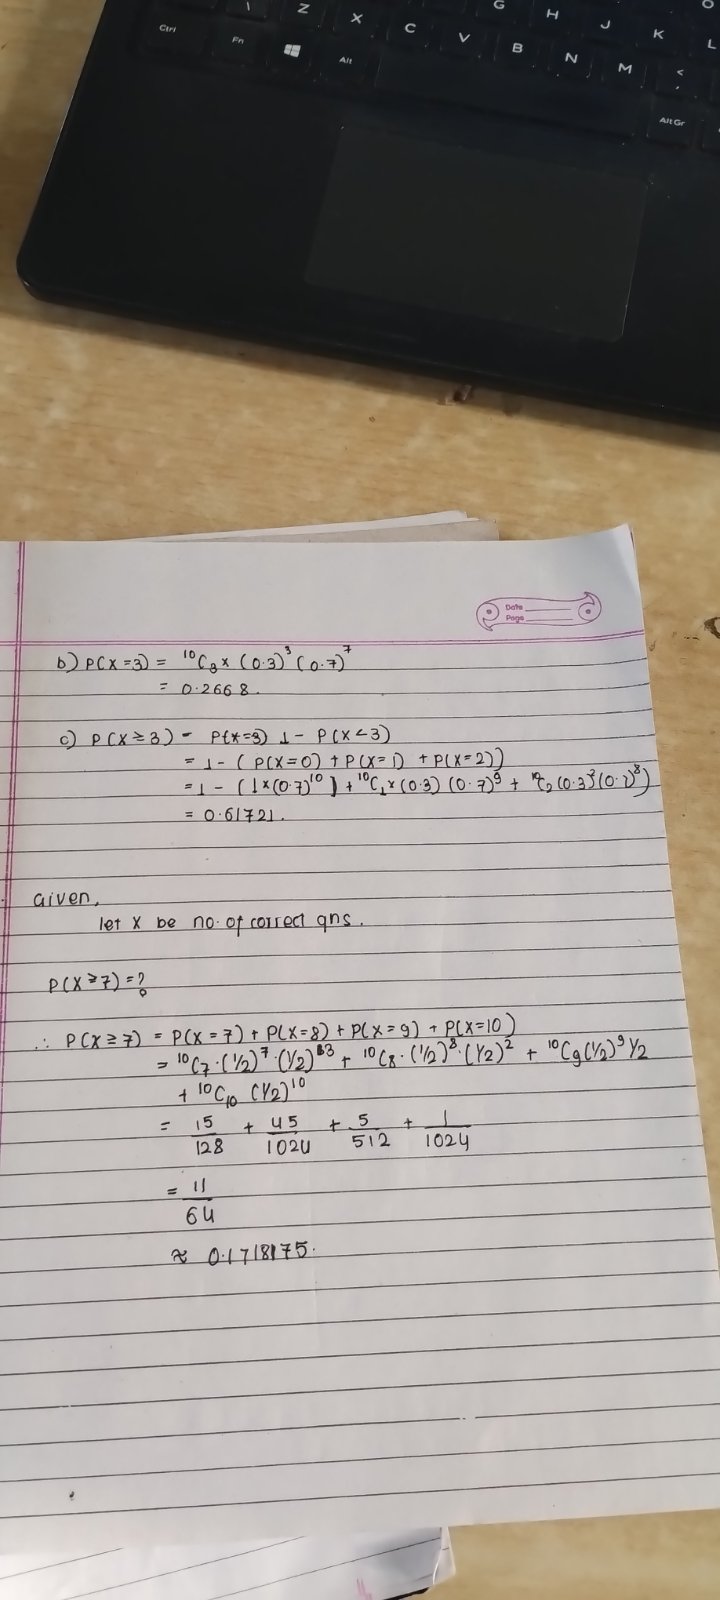 G H J K L
\ Z X C V B N M <
,
Ctrl Fn Alt Alt Gr
Date
Page
b) P(X=3) = ¹⁰C₃ × (0.3)³ (0.7)⁷
= 0.2668.
c) P(X≥3) = P(X=3) 1 - P(X<3)
= 1 - (P(X=0) + P(X=1) + P(X=2))
= 1 - (1×(0.7)¹⁰) + ¹⁰C₁×(0.3) (0.7)⁹ + ¹⁰C₂(0.3)²(0.7)⁸)
= 0.61721.
Given,
let X be no. of correct qns.
P(X≥7) = ?
∴ P(X≥7) = P(X=7) + P(X=8) + P(X=9) + P(X=10)
= ¹⁰C₇·(1/2)⁷·(1/2)³ + ¹⁰C₈·(1/2)⁸·(1/2)² + ¹⁰C₉(1/2)⁹1/2
+ ¹⁰C₁₀ (1/2)¹⁰
= 15/128 + 45/1024 + 5/512 + 1/1024
= 11/64
≈ 0.1718175.